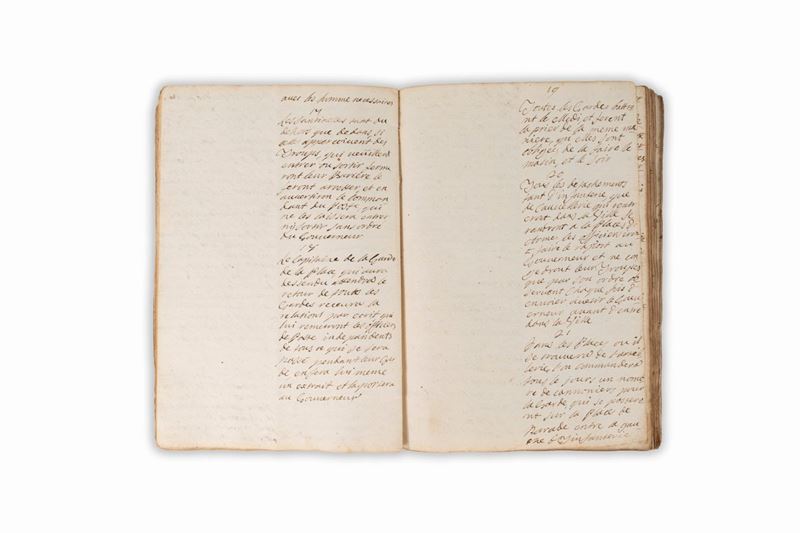 avec les homme necessaires
17
Les Santinelles tant du
dehors que de dans, si
elle appercoivent des
Troupes qui veuillent
entrer ou sortir ferme
ront leur Bariere le
feront arrester et en
avertiron le Comman
dant du Poste qui
ne les laissera entrer
ni sortir sans ordre
du Gouverneur
18
Le Capitaine de la Garde
de la Place qui aura
dessendu attendra le
retour de touts les
Gardes recevra la
relations par ecrit que
lui remetront les officiers
de Poste independents
de tous ce qui se sera
passé pendant leur Gar
de en fera lui meme
un extrait et la portera
au Gouverneur
19
Toutes les Gardes
nt le Midi et feront
la prier de la meme ma
niere qu'elles sont
obligés de la faire le
matin et le soir
20
Tous les detachements
tant d'infanterie que
de Cavallerie qui rentr
eront dans la Ville se
rantront a la Place
et ome les officiers ira
faire le raport au
Gouverneur et ne con
gedront leur Troupes
que par son ordre
servent Chaque fois d
envoier avertir le Gouv
erneur avant d'entré
dans la Ville
21
Dans les Places ou il
se trouvera de l'arti
lerie, l'on commandera
tous le jours un nomb
re de cannoniers pour
la Garde qui se posere
nt sur la Place de
Parade entre la gau
che d'Infanterie